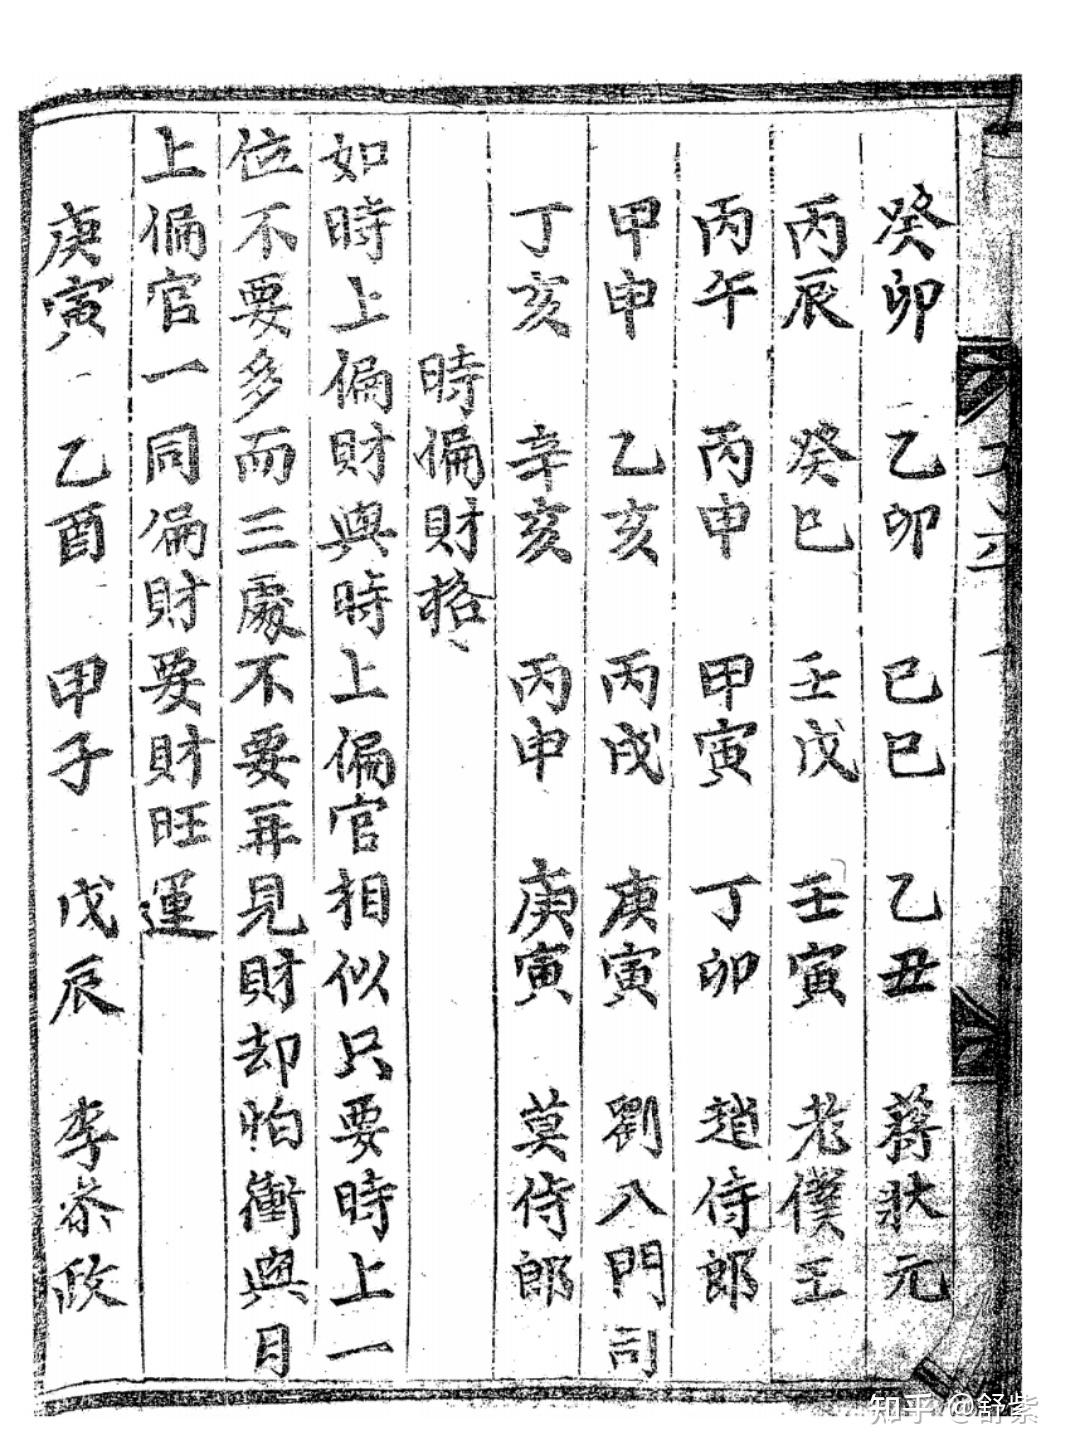 癸卯 乙卯 己巳 乙丑 蔣狀元
丙辰 癸巳 壬戌 壬寅 老僕王
丙午 丙申 甲寅 丁卯 趙侍郎
甲申 乙亥 丙戌 庚寅 劉八門司
丁亥 辛亥 丙申 庚寅 莫侍郎
時偏財格
如時上偏財與時上偏官相似只要時上一
位不要多而三處不要再見財却怕衝與月
上偏官一同偏財要財旺運
庚寅 乙酉 甲子 戊辰 李參政
知乎 @舒紫